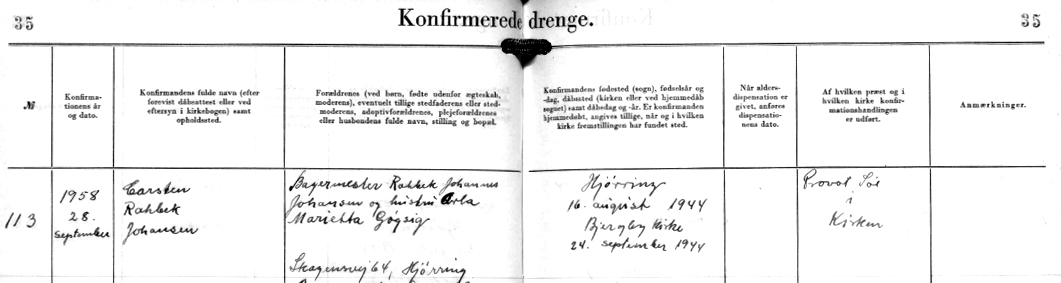 35
Konfirmerede drenge.
35
№
Konfirma-
tionens år
og dato.
Konfirmandens fulde navn (efter
forevist dåbsattest eller ved
eftersyn i kirkebogen) samt
opholdssted.
Forældrenes (ved børn, fødte udenfor ægteskab,
moderens), eventuelt tillige stedfaderens eller sted-
moderens, adoptivforældrenes, plejeforældrenes
eller husbondens fulde navn, stilling og bopæl.
Konfirmandens fødested (sogn), fødselsår og
-dag, dåbssted (kirken eller ved hjemmedåb
sognet) samt dåbsdag og -år. Er konfirmanden
hjemmedøbt, angives tillige, når og i hvilken
kirke fremstillingen har fundet sted.
Når alders-
dispensation er
givet, anføres
dispensatio-
nens dato.
Af hvilken præst og i
hvilken kirke konfir-
mationshandlingen
er udført.
Anmærkninger.
113
1958
28.
september
Carsten
Rahbek
Johansen
Bagermester Rahbek Johannes
Johansen og hustru Arla
Marietta Gøgsig
Skagensvej 64, Hjørring
Hjørring
16. august 1944
Bjergby Kirke
24. september 1944
Provst
i
Kirken